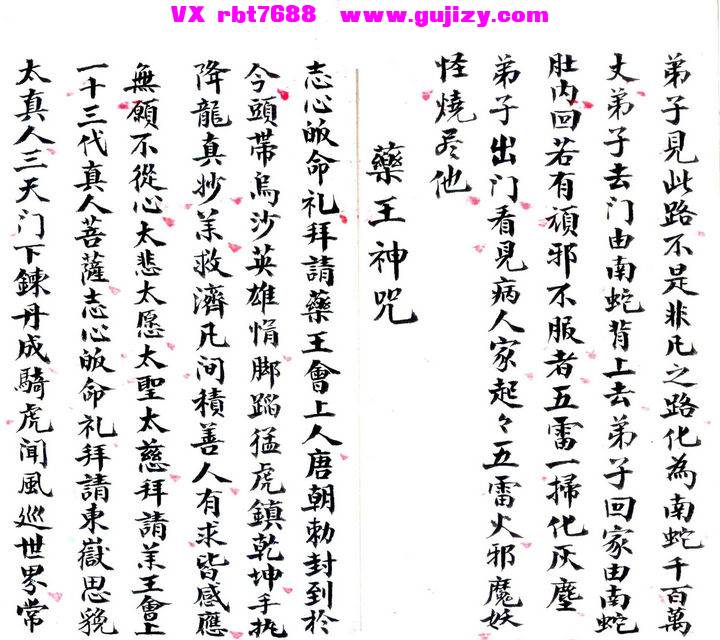 VX rbt7688 www.gujizy.com
弟子見此路不是非凡之路化為南蛇千百萬
丈弟子去门由南蛇背上去弟子回家由南蛇
肚内回若有頑邪不服者五雷一掃化灰塵
弟子出门看見病人家起々五雷火邪魔妖
怪燒尽他
藥王神咒
志心皈命礼拜請藥王會上人唐朝勅封到於
今頭帶烏沙英雄悄脚蹈猛虎鎮乾坤手执
降龍真妙羊救濟凡间積善人有求皆感應
無願不從心太悲太愿太聖太慈拜請羊王會上
一十三代真人菩薩志心皈命礼拜請東嶽思貌
太真人三天门下鍊丹成騎虎闻風巡世界常